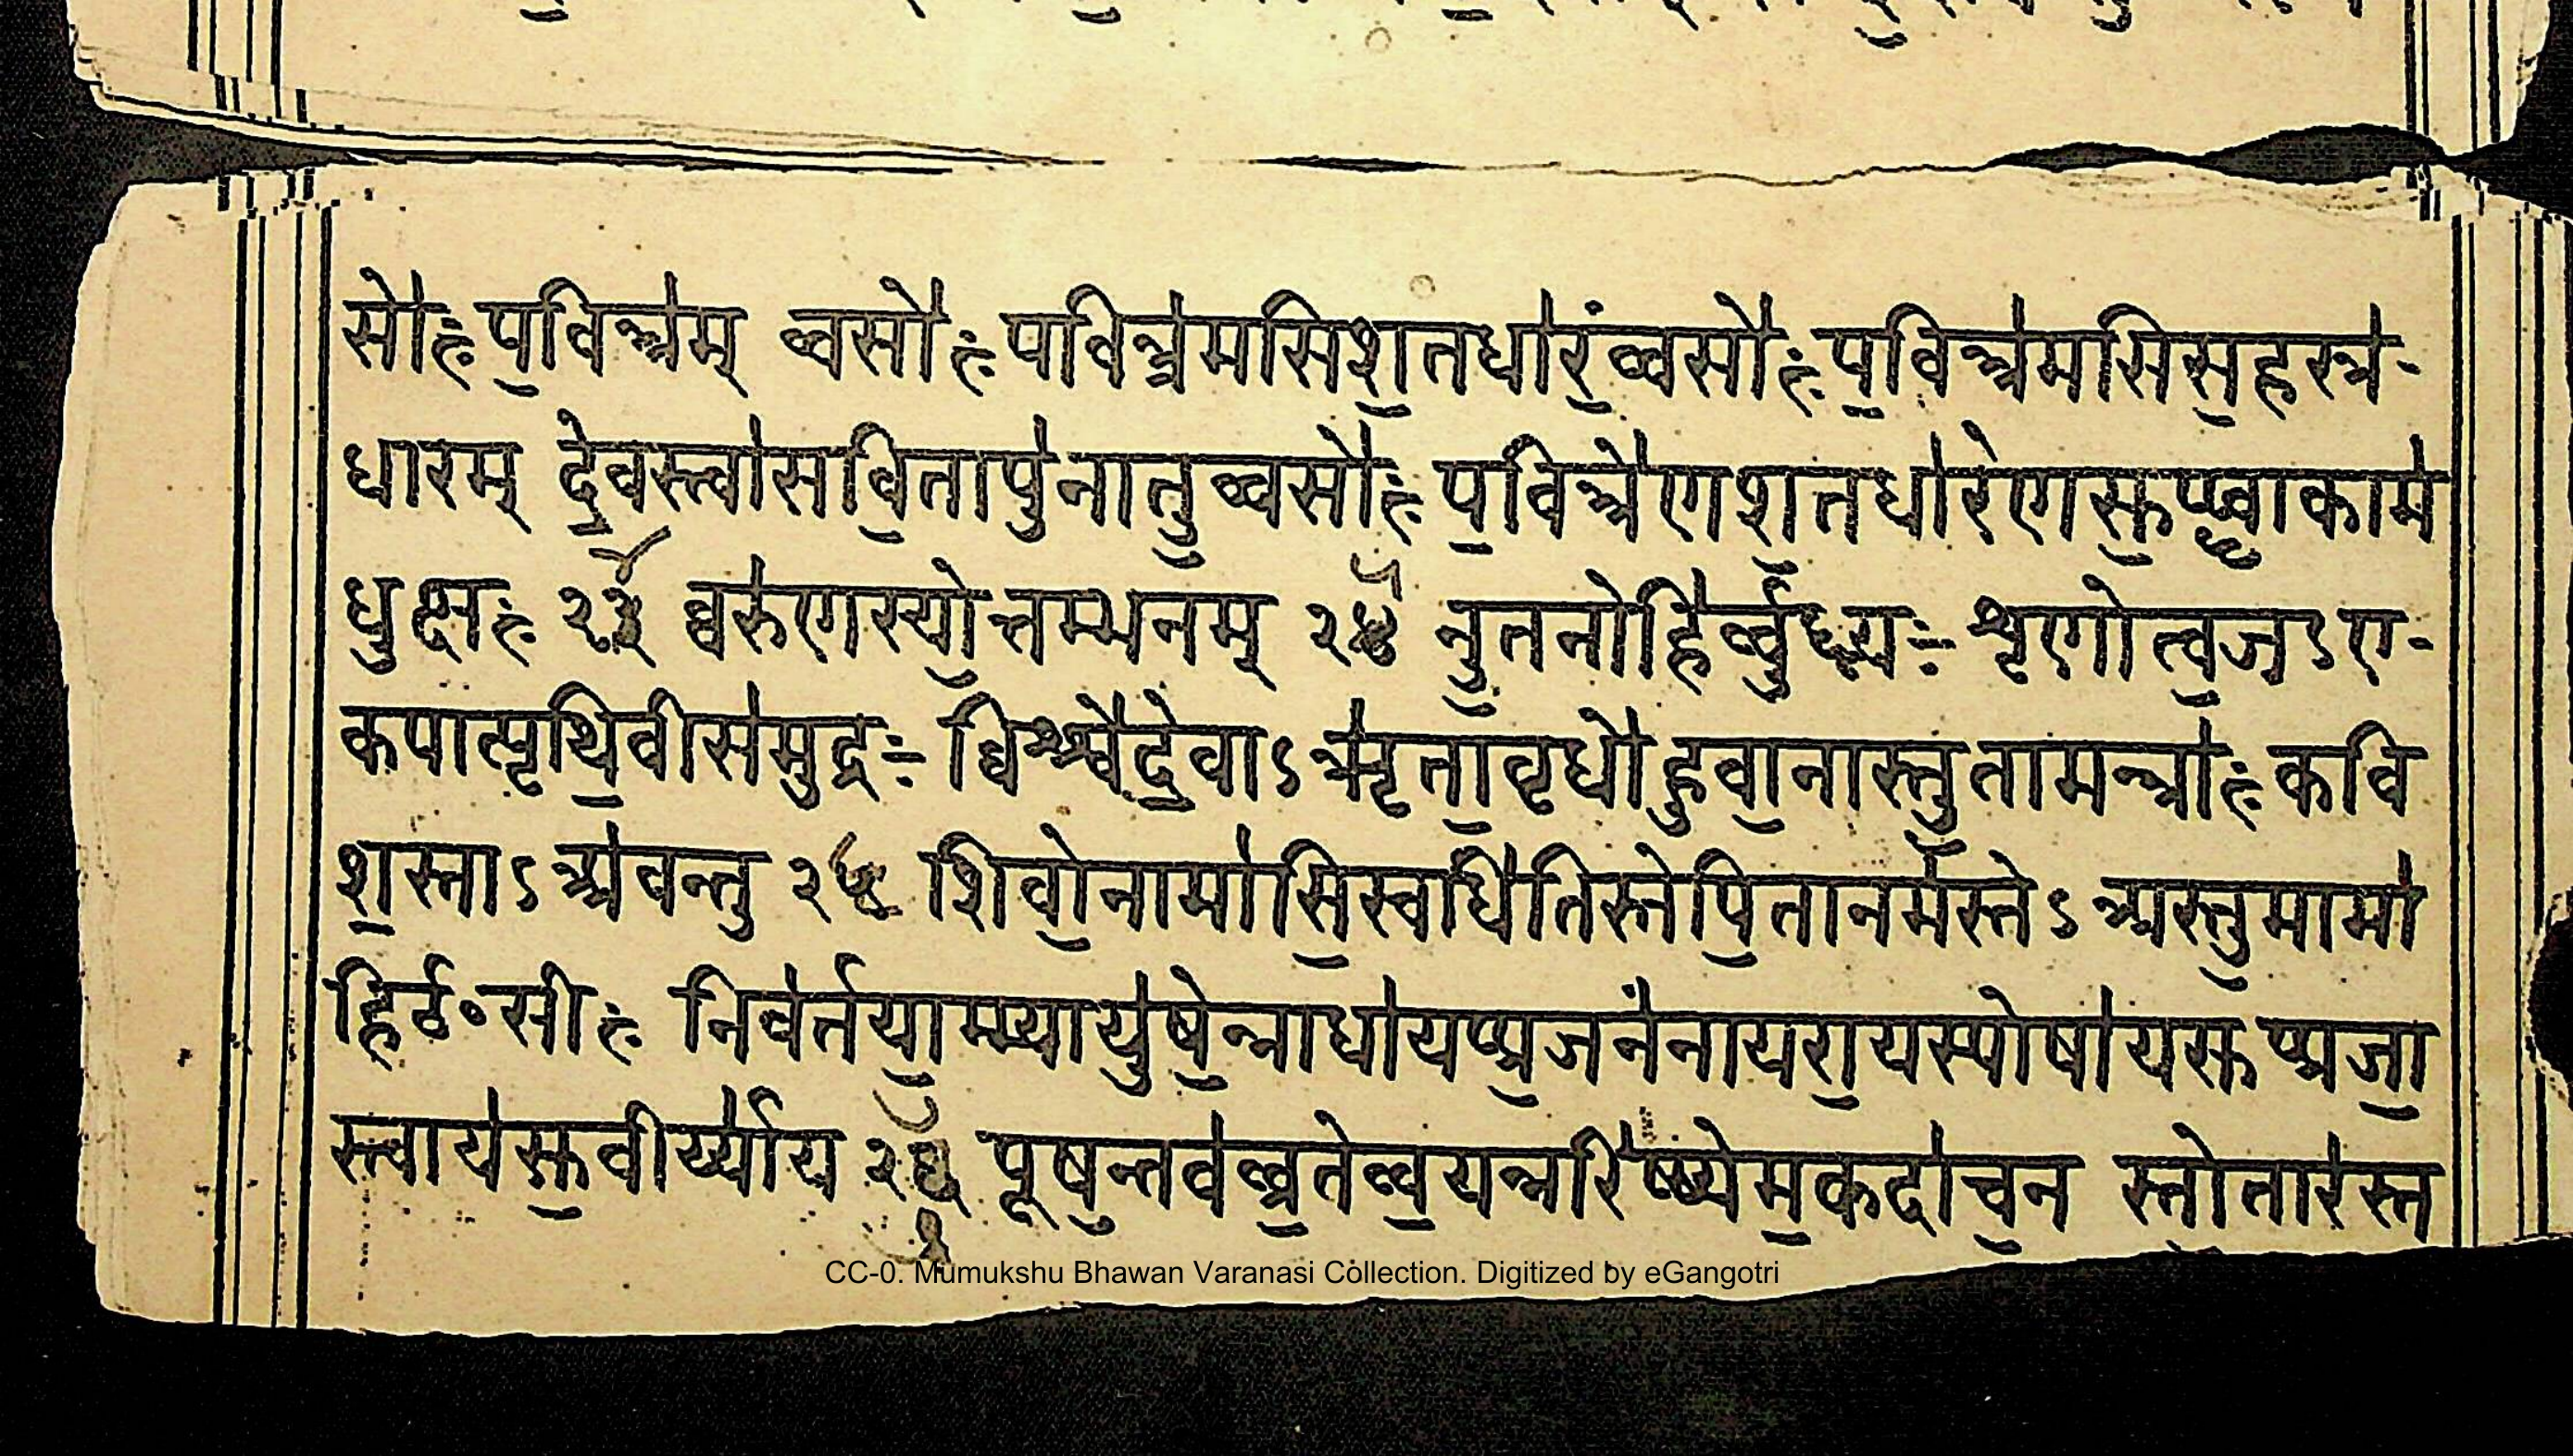 सो॑ः प॒वित्र॑म् व्वसो॑ः पवित्र॑मसिश॒तधा॑रं॒व्वसो॑ः प॒वित्र॑मसिस॒हस्त्र॑-
धारम् दे॒वस्त्वा॑सवि॒तापु॑नातु॒व्वसो॑ः प॒वित्रे॑णश॒तधा॑रेणसु॒प्प्वा॒काम॑
धुक्षः २३ व्वरु॑णस्यो॒त्तम्भनम् २४ नु॒तनोहि॑र्ब्बु॒ध्न्यः शृणोत्व॒जऽए-
कपात्पृथि॒वीस॑मुद्रः विश्श्वे॑दे॒वाऽऋ॑ता॒वृधो॑हुवा॒नास्तु॒तामन्त्रा॑ः कवि
श॒स्ताऽअ॑वन्तु २५ शिवो॒नामा॑सि॒स्वधि॑तिस्तेपि॒तानम॑स्तेऽअस्तु॒मामा॑
हिᳪसीः निव॑र्तया॒म्म्यायु॑षे॒न्नाद्या॑यप्प्र॒जन॑नायरा॒यस्पोषा॑यसुप्प्रजा॒
स्त्वाय॑सु॒वीर्य्या॑य २६ पूष॒न्तव॑व्व्र॒तेव्व॒यन्नरि॑ष्ष्येम॒कदा॑च॒न स्तो॒तार॑स्त
CC-0. Mumukshu Bhawan Varanasi Collection. Digitized by eGangotri